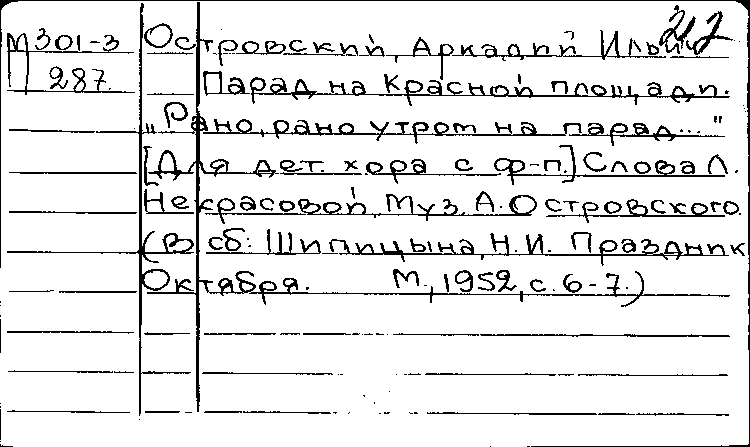 М 301-3 Островский, Аркадий Ильич 212
287 Парад на Красной площади.
„Рано, рано утром на парад..."
[Для дет. хора с ф-п.] Слова Л.
Некрасовой, Муз. А. Островского.
(В сб: Шипицына, Н.И. Праздник
Октября. М., 1952, с. 6-7.)